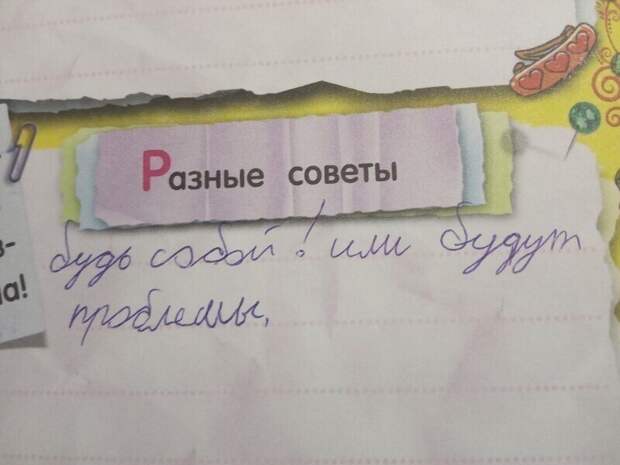 Разные советы
в-
а!
будь собой! или будут
проблемы.